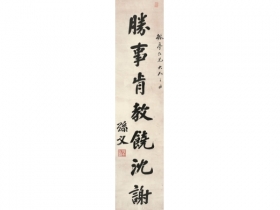 勝事肯教饒沈謝
孫文